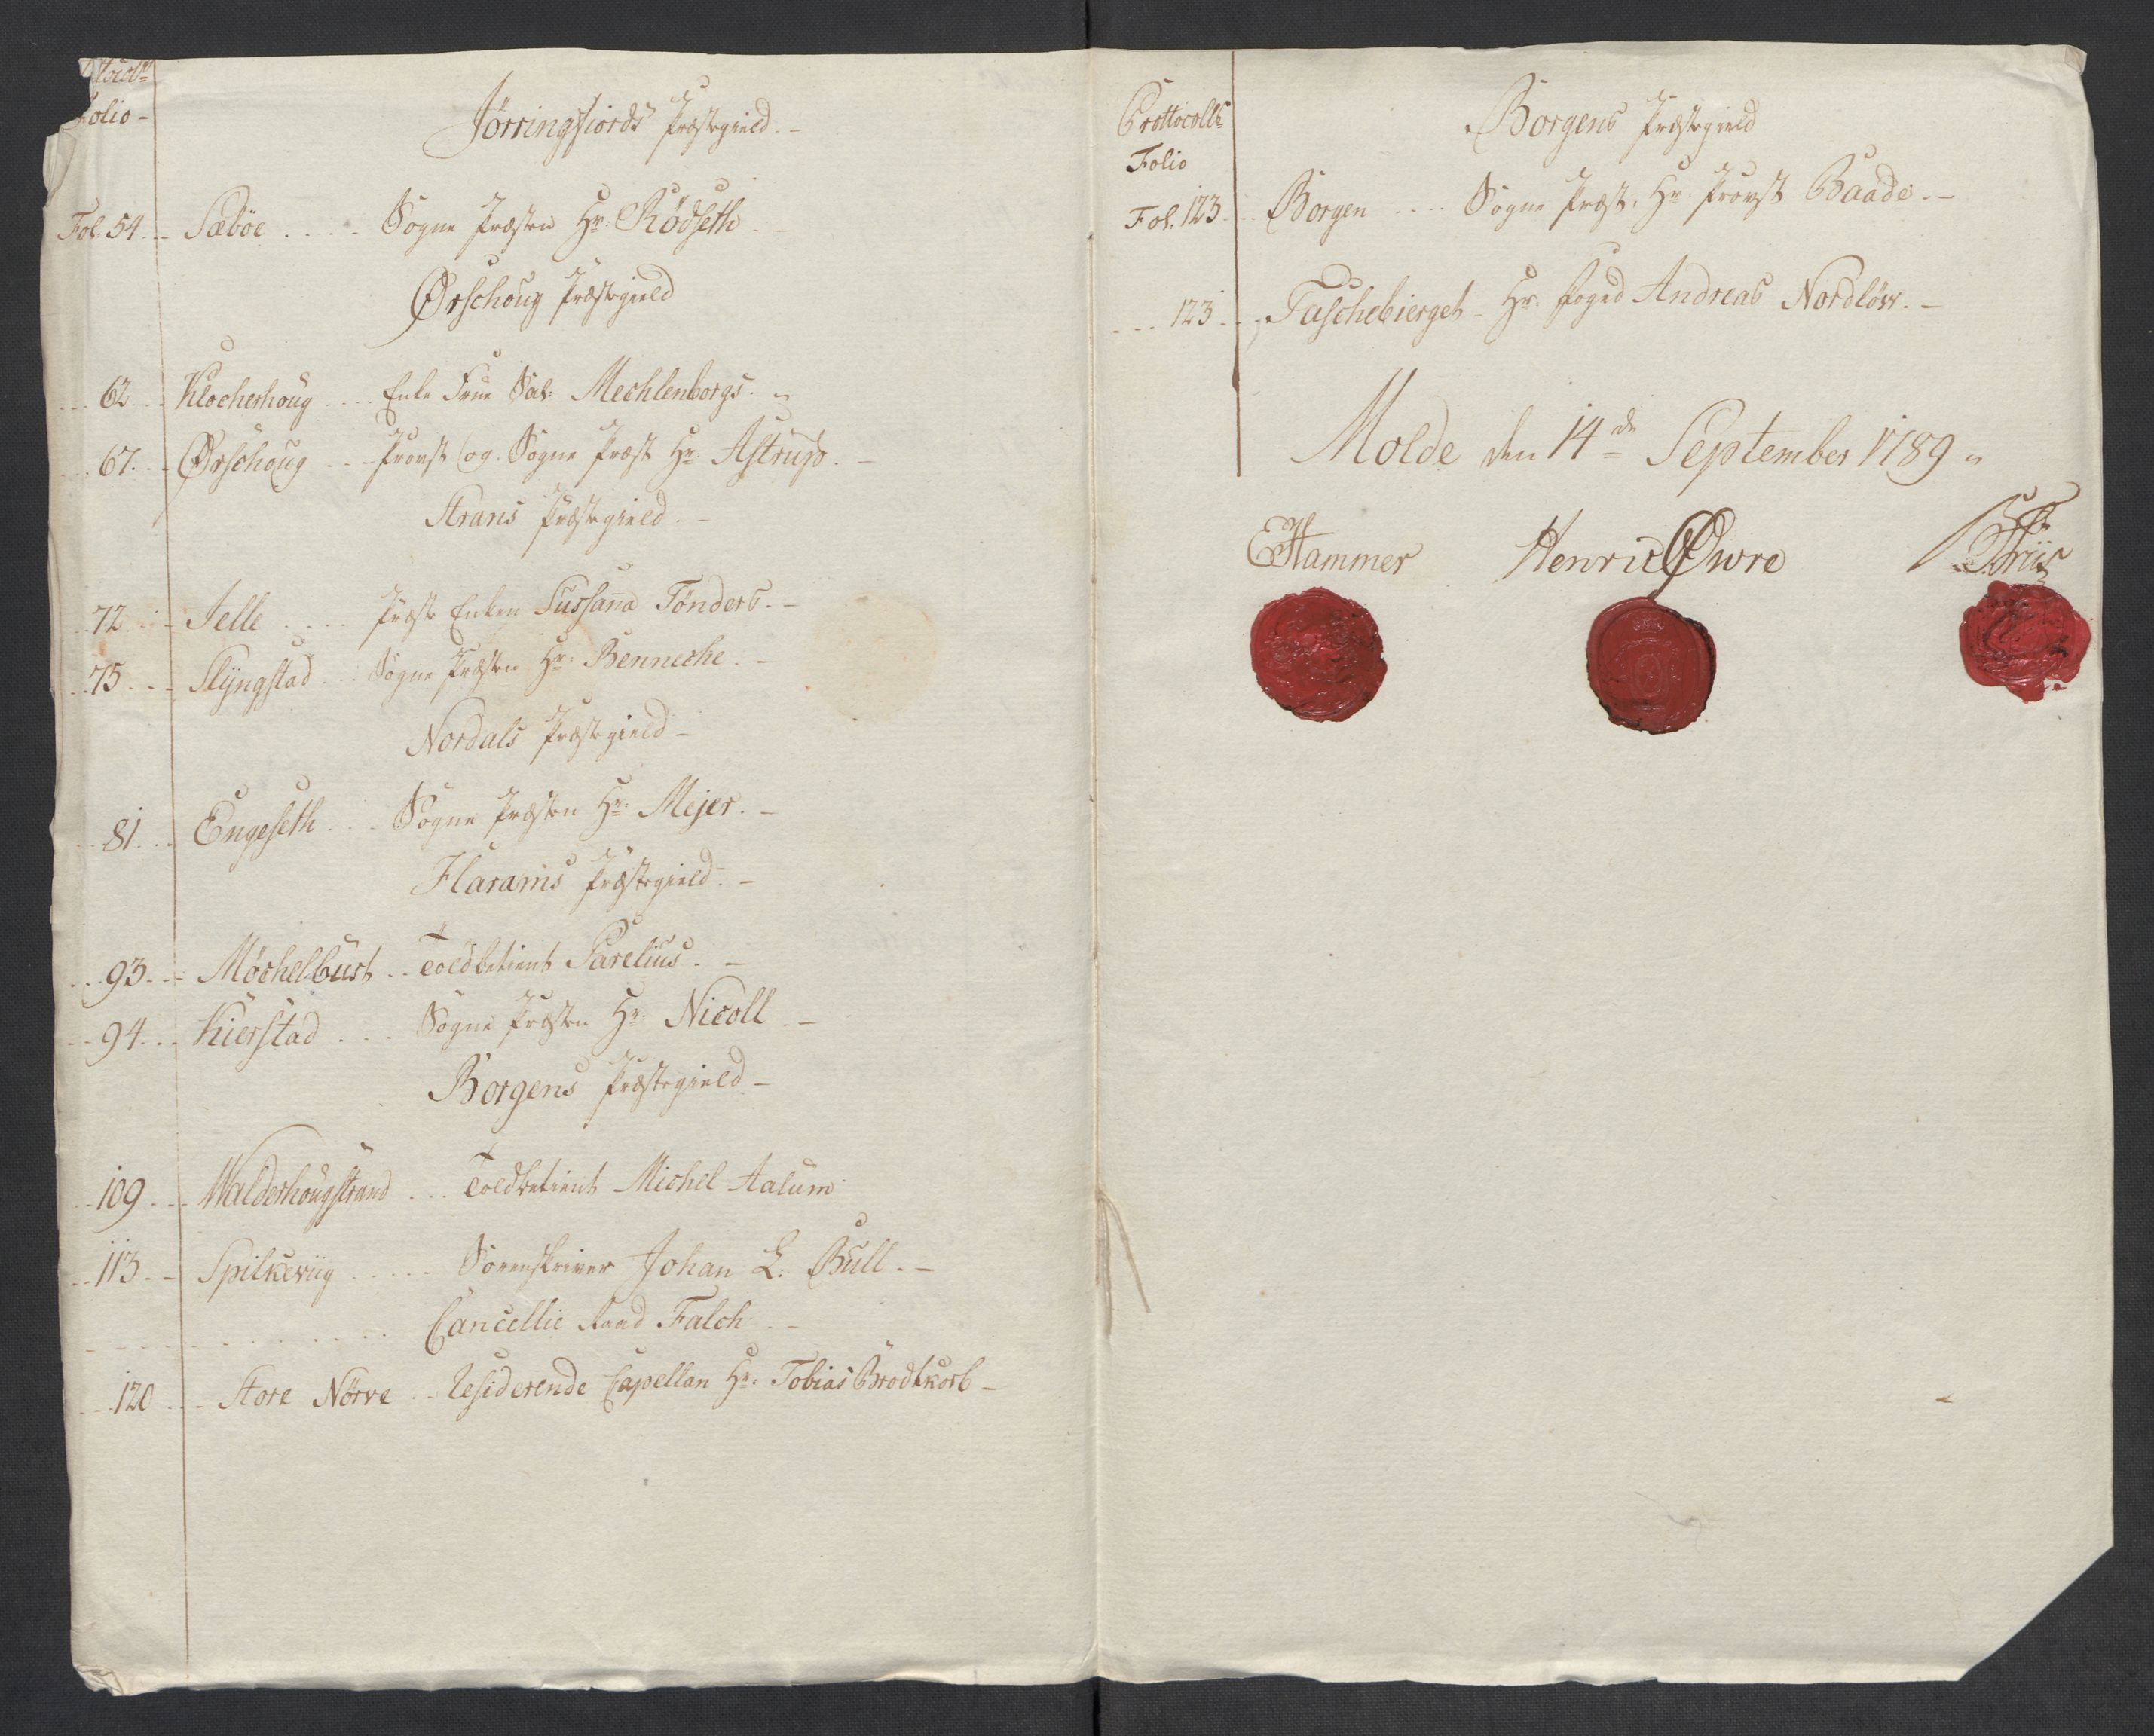 Folio -
Jørringfiords Præstegield. -
Fol. 54 Sæbøe Sogne Præsten Hr: Rødseth
Ørschoug Præstegield
62 Klocherhoug Enke Frue Sal: Mechlenborgs.
67. Ørschoug Provst og Sogne Præst Hr: Astrup. -
Strans Præstegield. -
72 Jelle Præste Enken Sussana Tønders. -
75 Slÿngstad Sogne Præsten Hr: Benneche. -
Nordals Præstegield -
81 Engeseth Sogne Præsten Hr: Mejer. -
Harams Præstegield. -
93. Møchelbust Toldbetient Parelius. -
94. Kierstad Sogne Præsten Hr: Nicoll. -
Borgens Præstegield -
109 Walderhougstrand Toldbetient Michel Aalum
113 Spilkeviig Sorenskriver Johan L: Bull. -
Cancellie Raad Falch. -
120 Store Nørve Residerende Capellan Hr: Tobias Brodtkorb -
Prottocolls
Folio
Borgens Præstegield
Fol. 123 Borgen Sogne Præst. Hr. Provst Baade. -
123 Taschebierget - Hr. Foged Andreas Nordløw. -
Molde den 14de September 1789
EHammer Henric Øwre